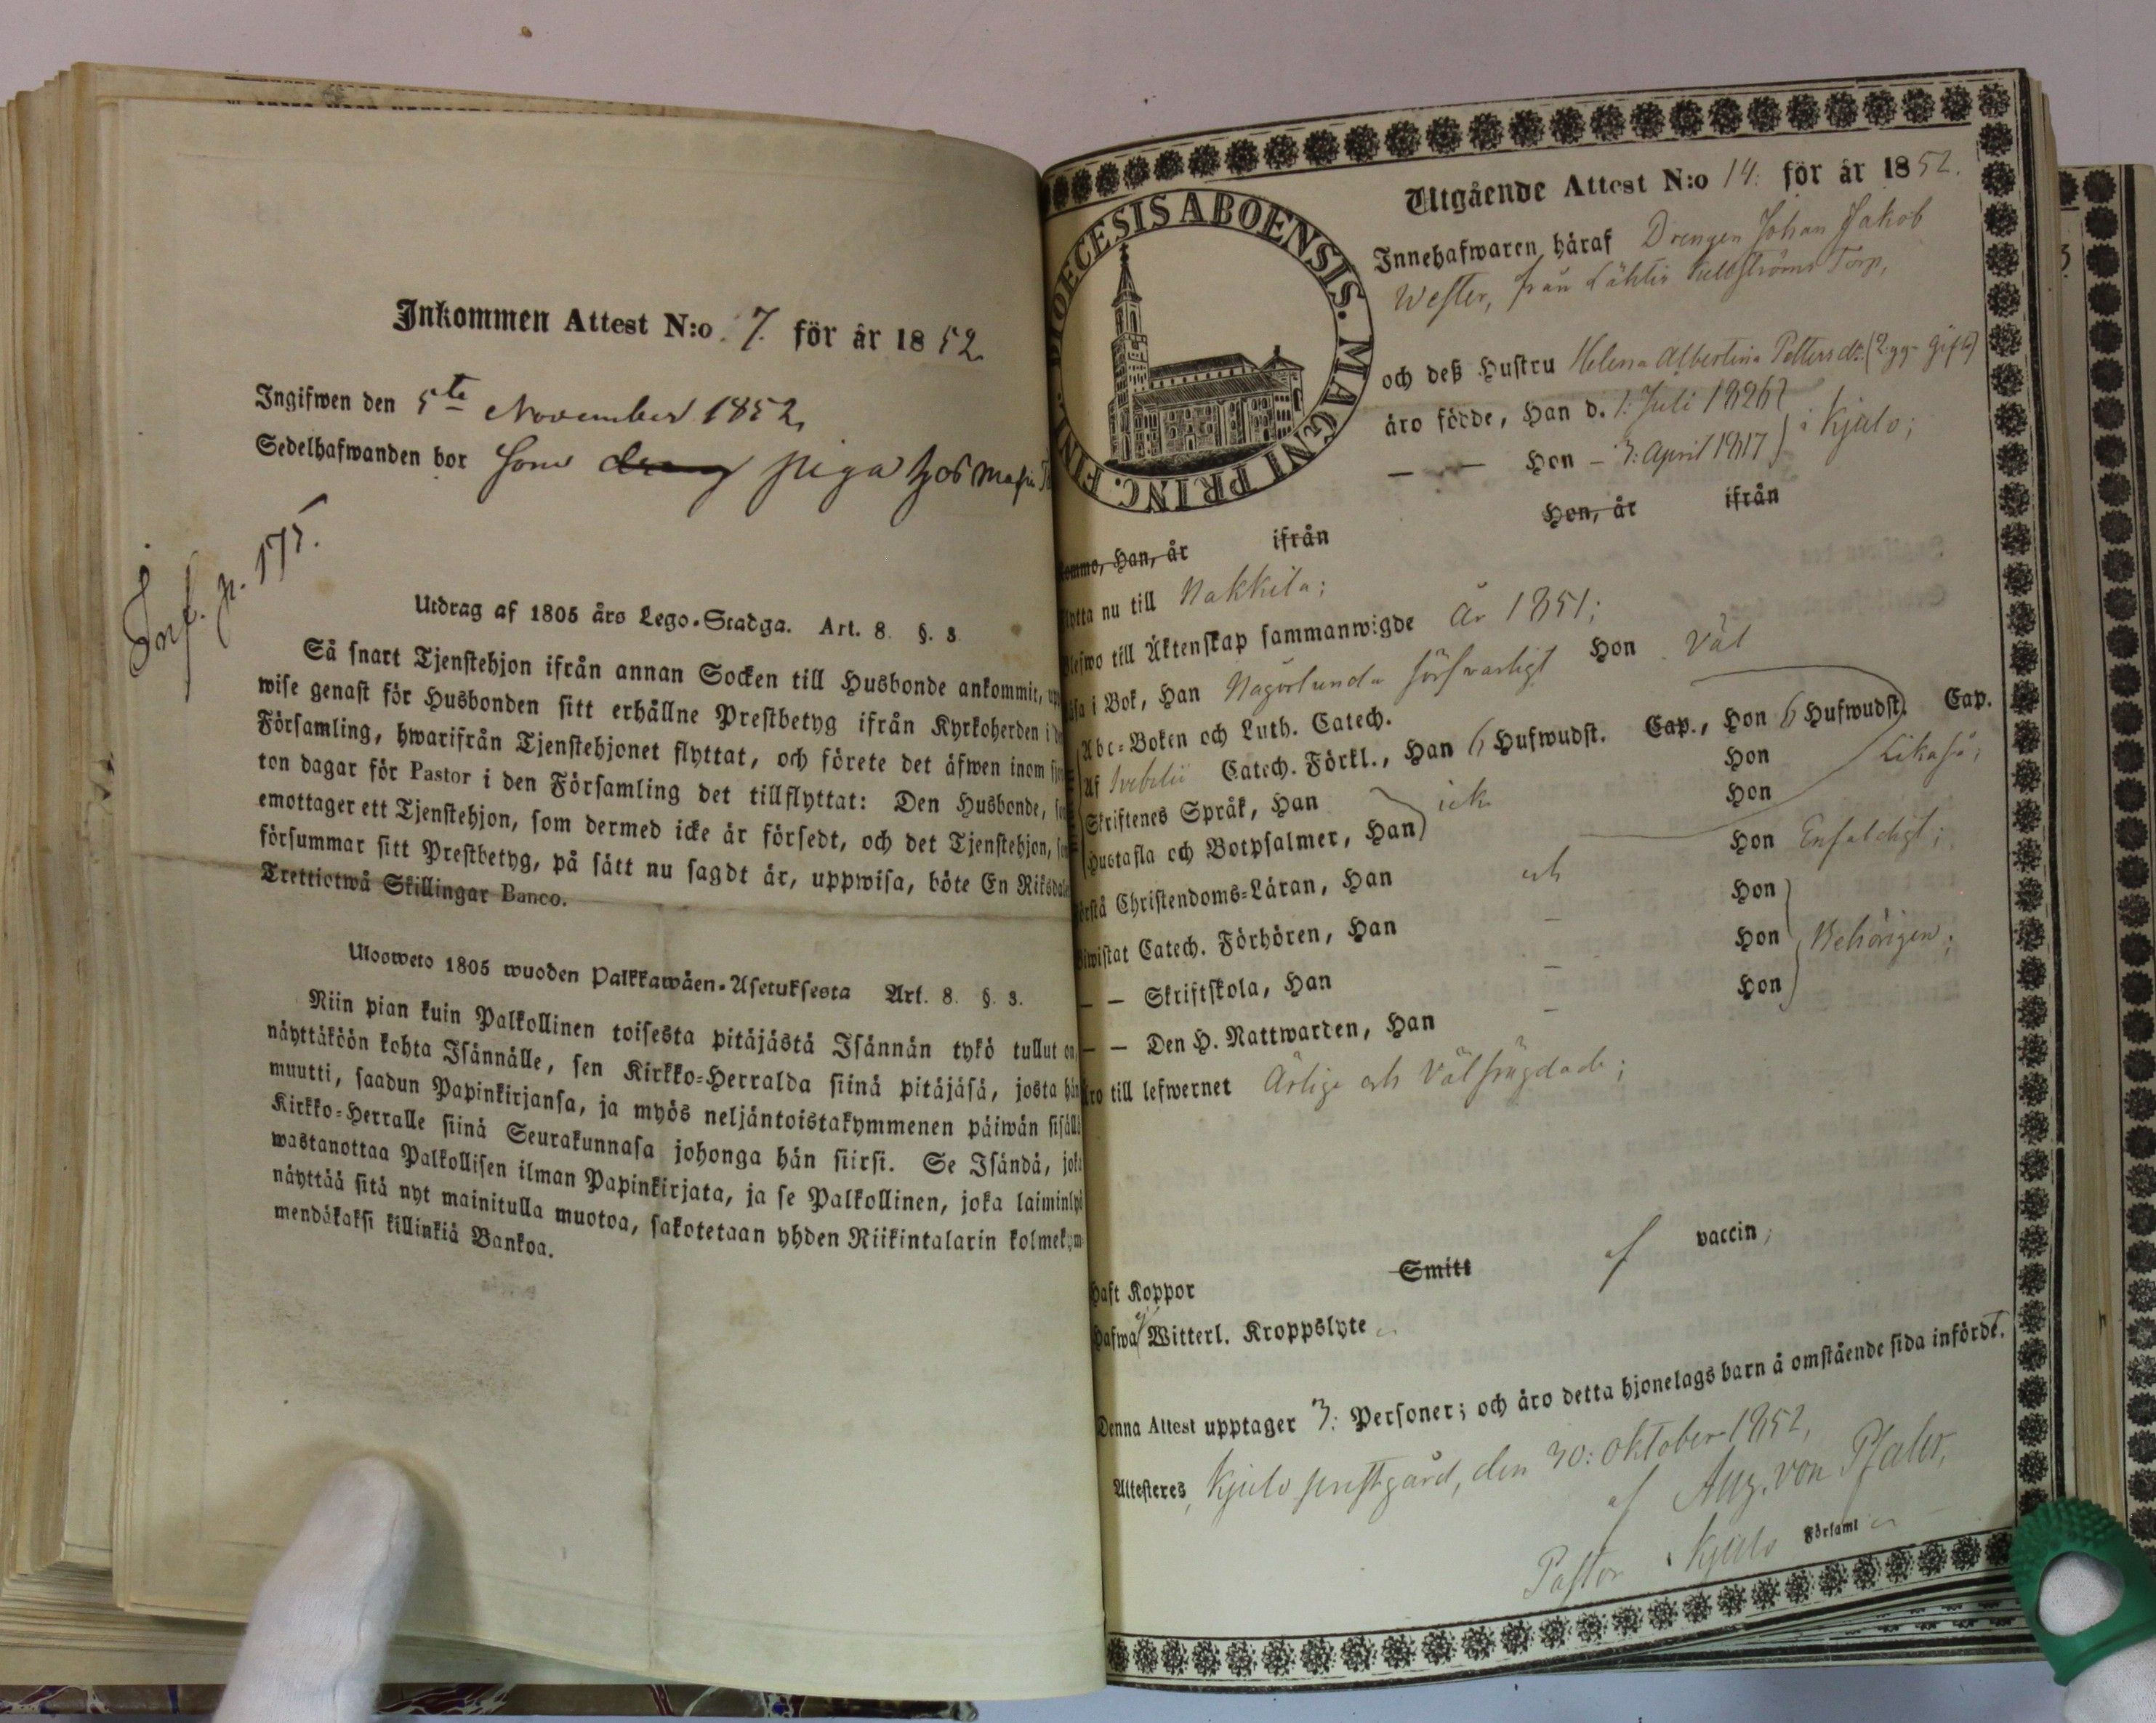 Inkommen Attest N:o 7. för år 1852.
Ingifwen den 5te November 1852,
Sedelhafwanden bor som dreng piga hos
Inf. p. 175.
Utdrag af 1805 års Lego-Stadga. Art. 8. §. 3.
Så snart Tjenstehjon ifrån annan Socken till Husbonde ankommit, upp
wise genast för Husbonden sitt erhållne Prestbetyg ifrån Kyrkoherden i
Församling, hwarifrån Tjenstehjonet flyttat, och förete det äfwen inom
ton dagar för Pastor i den Församling det tillflyttat: Den Husbonde,
emottager ett Tjenstehjon, som dermed icke är försedt, och det Tjenstehjon,
försummar sitt Prestbetyg, på sätt nu sagdt är, uppwisa, böte En Riksdale
Trettiotwå Skillingar Banco.
Uloosweto 1805 wuoden Palkkawäen-Asetuksesta Art. 8. §. 3.
Niin pian kuin Palkollinen toisesta pitäjästä Isännän tykö tullut on,
näyttäköön kohta Isännälle, sen Kirkko-Herralda siinä pitäjäsä, josta hän
muutti, saadun Papinkirjansa, ja myös neljäntoistakymmenen päiwän sisällä
Kirkko-Herralle siinä Seurakunnasa johonga hän siirsi. Se Isändä, joka
wastanottaa Palkollisen ilman Papinkirjata, ja se Palkollinen, joka laiminlyö
näyttää sitä nyt mainitulla muotoa, sakotetaan yhden Riikintalarin kolmekym-
mendäkaksi killinkiä Bankoa.
DIOECESIS ABOENSIS. MAGNI PRINC. FINL.
Utgående Attest N:o 14: för år 1852.
Innehafwaren häraf Drengen Johan Jakob
Wester, från Lähtis Torp,
och deß Hustru Helena Albertina Pettersdr. (2. gg. gift)
äro födde, Han d. 1: Juli 1826
— — Hon – 3: April 1817 i Kjulo;
komme, Han, år ifrån Hon, år ifrån
flytta nu till Nakkila;
Blefwo till Äktenskap sammanwigde År 1851;
läsa i Bok, Han Någorlunda försvarligt Hon Väl
Abc-Boken och Luth. Catech.
Af Svebelii Catech. Förkl., Han 6 Hufwudst. Cap., Hon 6 Hufwudst. Cap.
Skriftenes Språk, Han ick Hon Likaså;
Hustafla och Botpsalmer, Han Hon
förstå Christendoms-Läran, Han och Hon Enfaldigt;
Biwistat Catech. Förhören, Han – Hon
— — Skriftskola, Han – Hon Behörigen;
— — Den H. Nattwarden, Han – Hon
äro till lefwernet Ärlige och Välfrägdade;
Haft Koppor Smitt af vaccin;
Hafwa Witterl. Kroppslyte
Denna Attest upptager 3: Personer; och äro detta hjonelags barn å omstående sida införde.
Attesteres, Kjulo prestgård, den 30: Oktober 1852,
af Aug. von Pfaler,
Pastor i Kjulo Församl